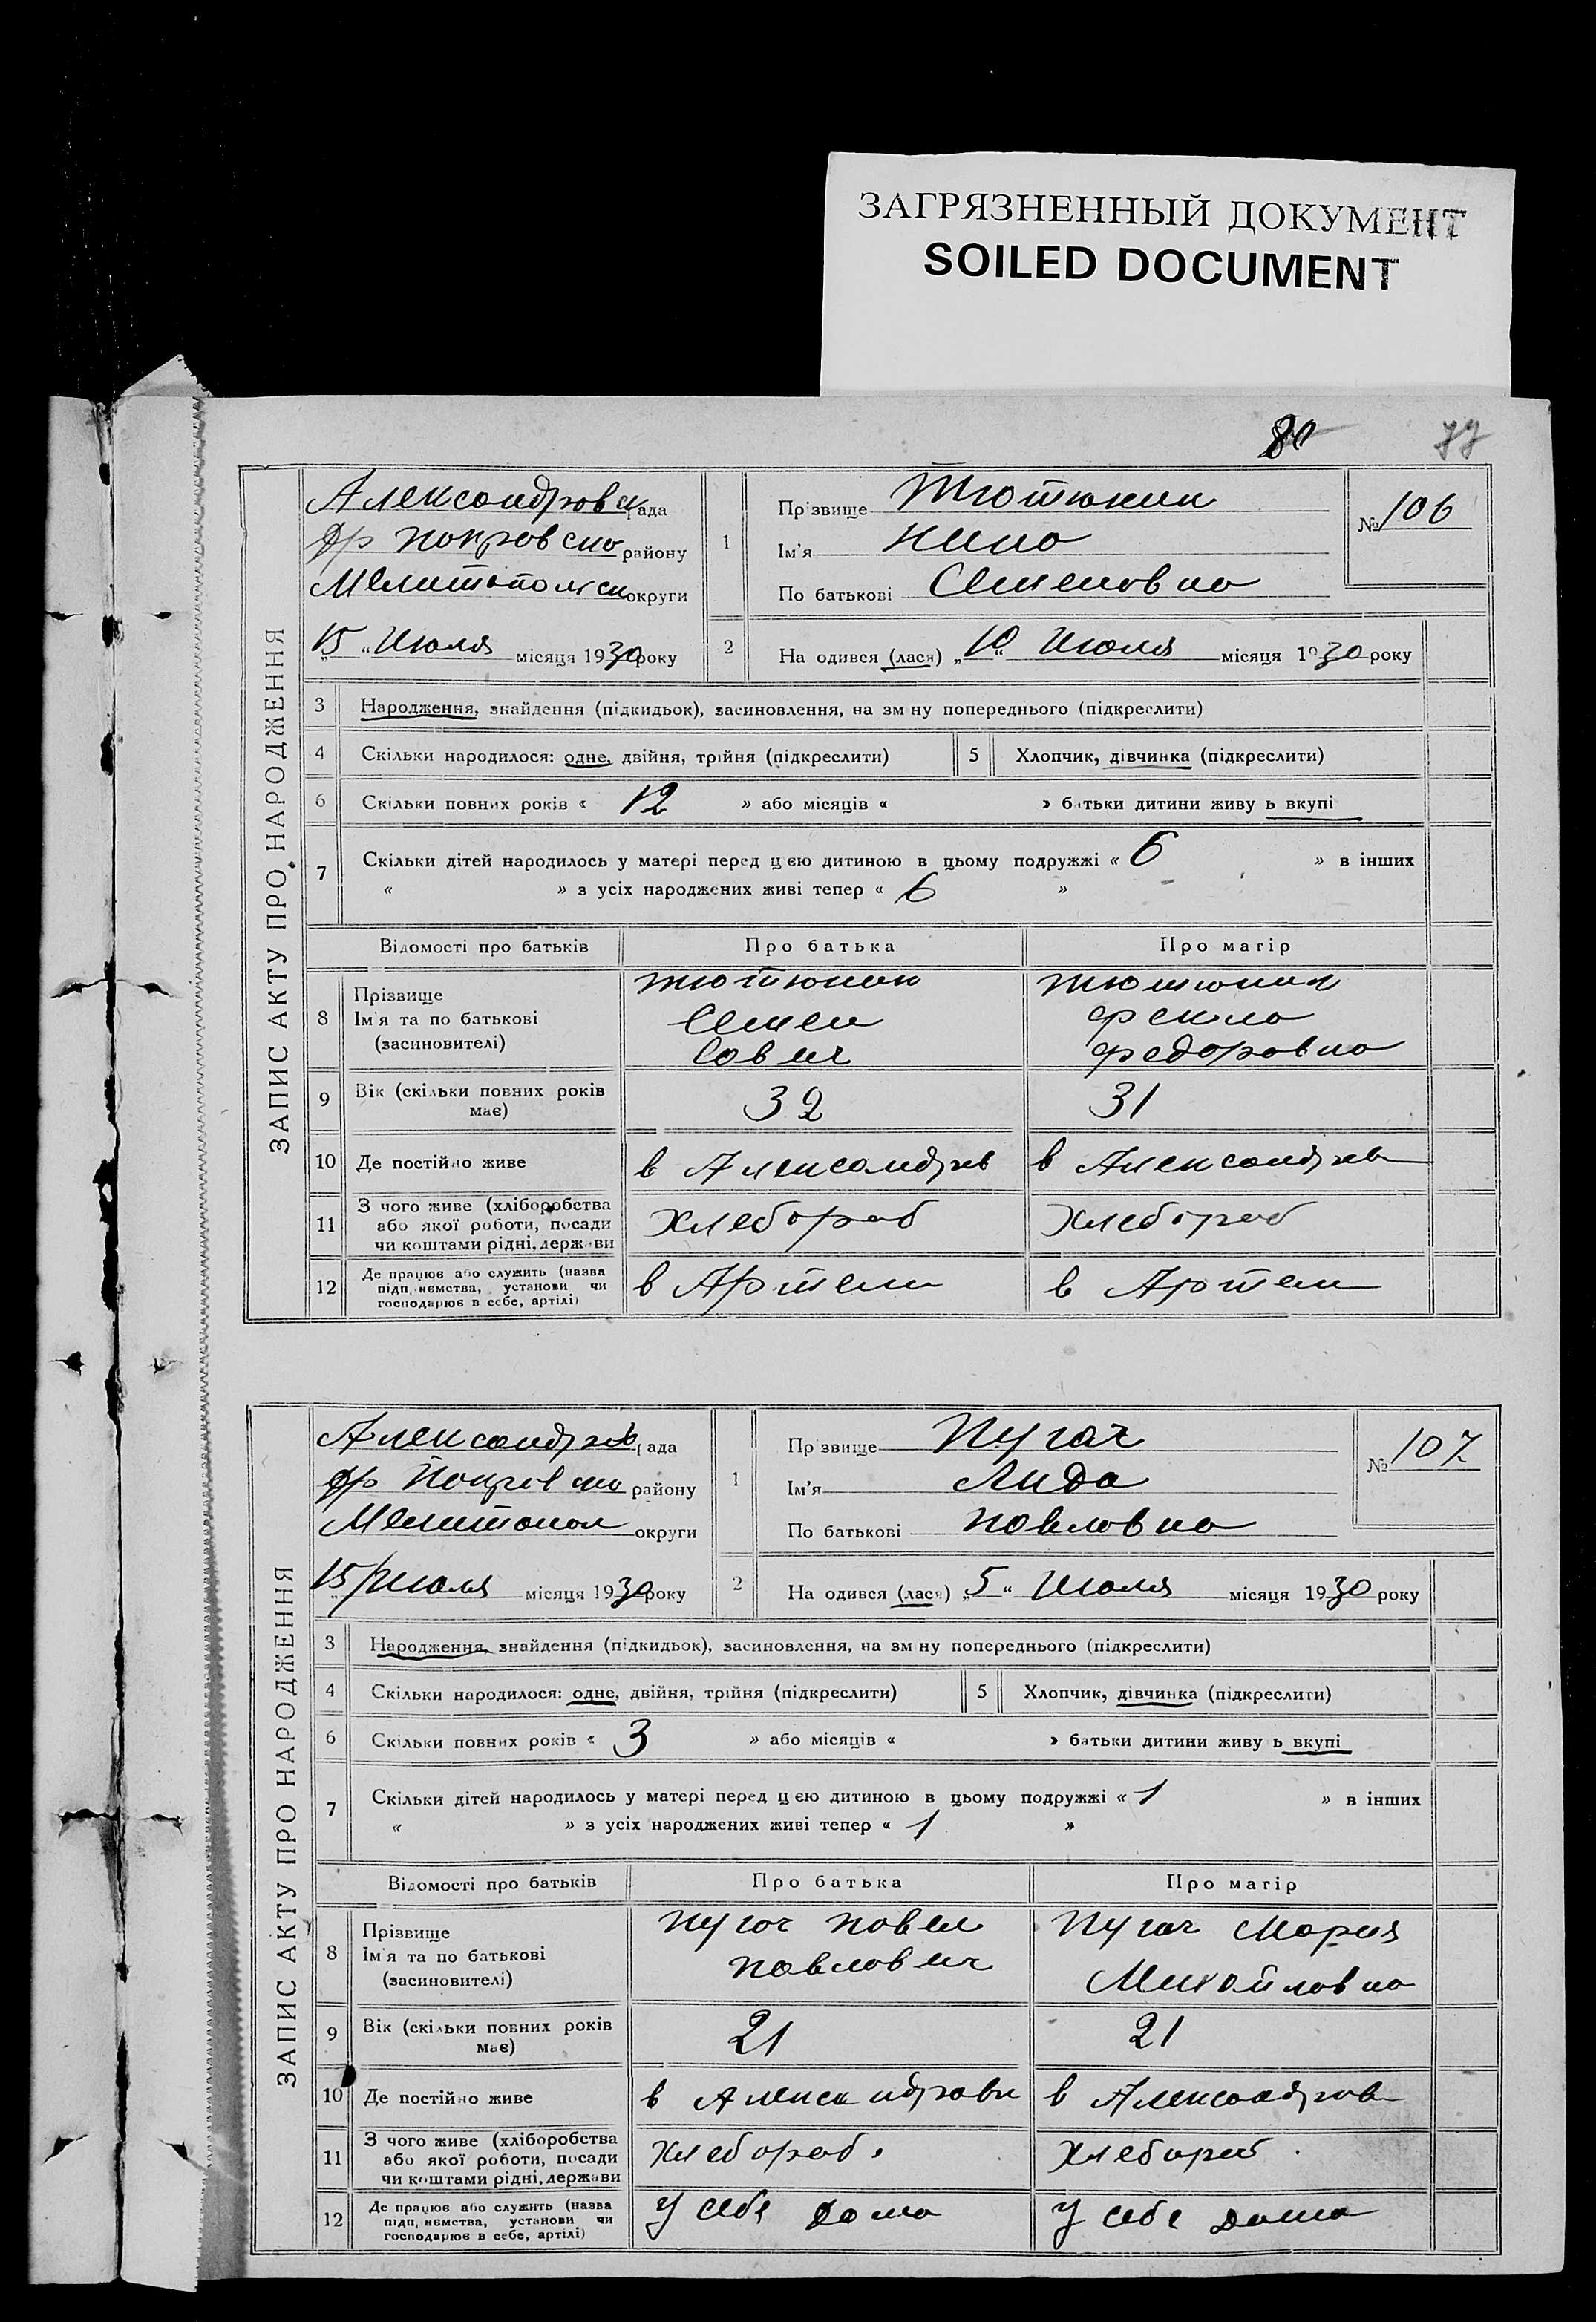 ЗАГРЯЗНЕННЫЙ ДОКУМЕНТ
SOILED DOCUMENT
80 77
ЗАПИС АКТУ ПРО НАРОДЖЕННЯ
Александровск рада
Покровско району
Мелитопольск округи
„15“ Июля місяця 1930 року
1 Прізвище Тютюник
Ім'я Нина
По батькові Семеновна
№ 106
2 На одився (лася) „10“ Июля місяця 1930 року
3 Народження, знайдення (підкидьок), засиновлення, на зм ну попереднього (підкреслити)
4 Скільки народилося: одне, двійня, трійня (підкреслити) 5 Хлопчик, дівчинка (підкреслити)
6 Скільки повних років « 12 » або місяців « » батьки дитини живу ь вкупі
7 Скільки дітей народилось у матері перед цею дитиною в цьому подружжі « 6 » в інших
« » з усіх народжених живі тепер « 6 »
Відомості про батьків Про батька Про матір
8 Прізвище Тютюник Тютюник
Ім'я та по батькові Семен Фекла
(засиновителі) Савич Федоровна
9 Вік (скільки повних років має) 32 31
10 Де постійно живе в Александров в Александров
11 З чого живе (хліборобства
або якої роботи, посади Хлебороб Хлебороб
чи коштами рідні, держави
12 Де працює або служить (назва
підп, иємства, установи чи в Артели в Артели
господарює в себе, артілі)
ЗАПИС АКТУ ПРО НАРОДЖЕННЯ
Александров рада
Покров району
Мелитопол округи
15 Июля місяця 1930 року
1 Прізвище Пугач
Ім'я Лида
По батькові Павловна
№ 107
2 На одився (лася) „5“ Июля місяця 1930 року
3 Народження, знайдення (підкидьок), засиновлення, на зм ну попереднього (підкреслити)
4 Скільки народилося: одне, двійня, трійня (підкреслити) 5 Хлопчик, дівчинка (підкреслити)
6 Скільки повних років « 3 » або місяців « » батьки дитини живу ь вкупі
7 Скільки дітей народилось у матері перед цею дитиною в цьому подружжі « 1 » в інших
« » з усіх народжених живі тепер « 1 »
Відомості про батьків Про батька Про матір
8 Прізвище Пугач Павел Пугач Мария
Ім'я та по батькові Павлович Михайловна
(засиновителі)
9 Вік (скільки повних років має) 21 21
10 Де постійно живе в Александровк в Александров
11 З чого живе (хліборобства
або якої роботи, посади Хлебороб Хлебороб
чи коштами рідні, держави
12 Де працює або служить (назва
підп, иємства, установи чи У себе дома У себе дома
господарює в себе, артілі)